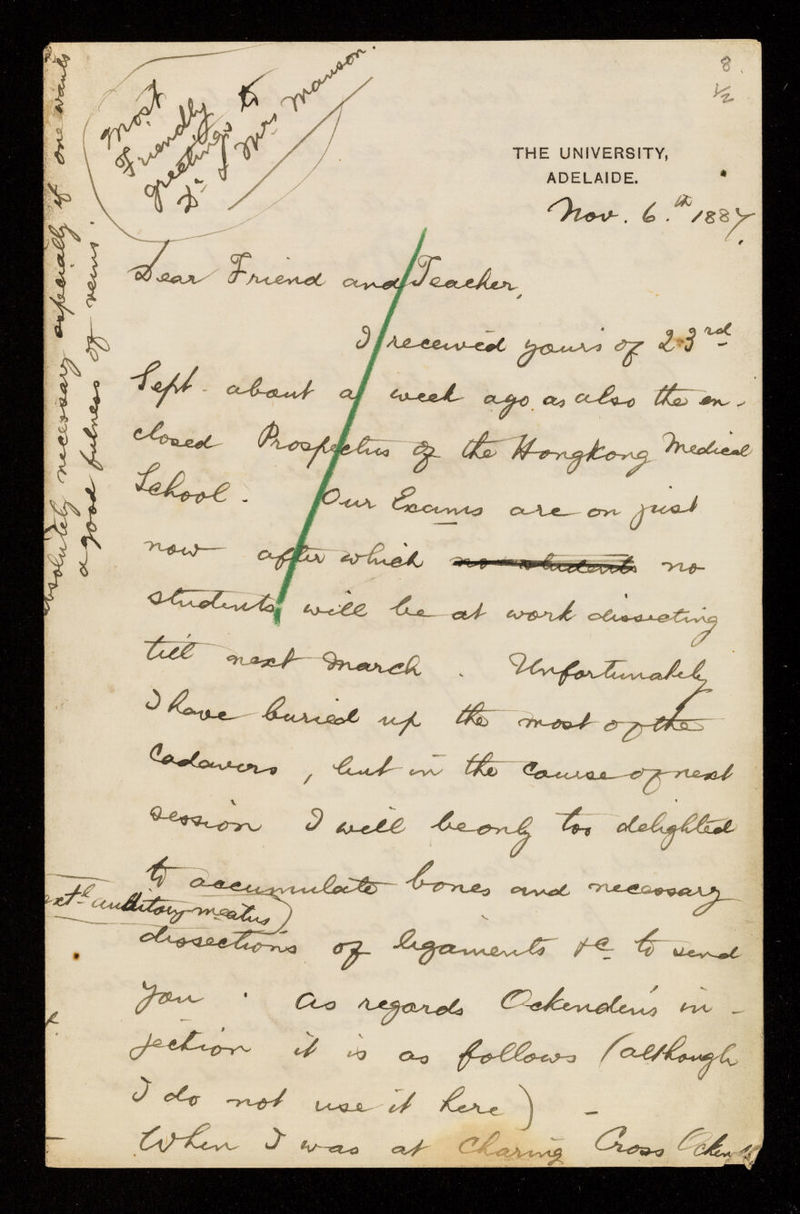 8
1/2
Most
Friendly
greetings to
Dr & Mrs Manson.
THE UNIVERSITY,
ADELAIDE.
Nov. 6.th 1887.
Dear Friend and Teacher,
I received yours of 23rd
Sept. about a week ago. as also the en-
closed Prospectus of the Hongkong Medical
School. Our Exams are on just
now after which no students no
students will be at work dissecting
till next March. Unfortunately
I have buried up the most of the
cadavers, but in the course of next
session I will be only too delighted
to accumulate bones and necessary
dissections of ligaments &c to send
you. As regards Ockenden's in-
jection it is as follows (although
I do not use it here) -
When I was at Charing Cross
absolutely necessary especially if one wants
a good fulness of veins.
auditory meatus)